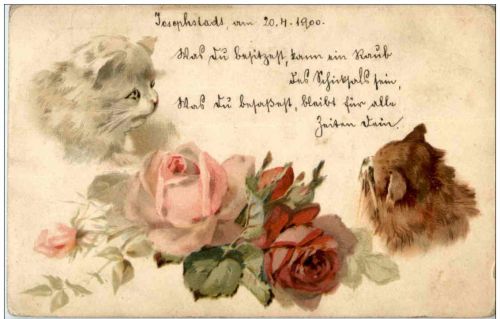 Josephstadt, am 20.4.1900.
Was Du besitzest, kann ein Raub
des Schicksals sein,
Was Du besaßest, bleibt für alle
Zeiten Dein.